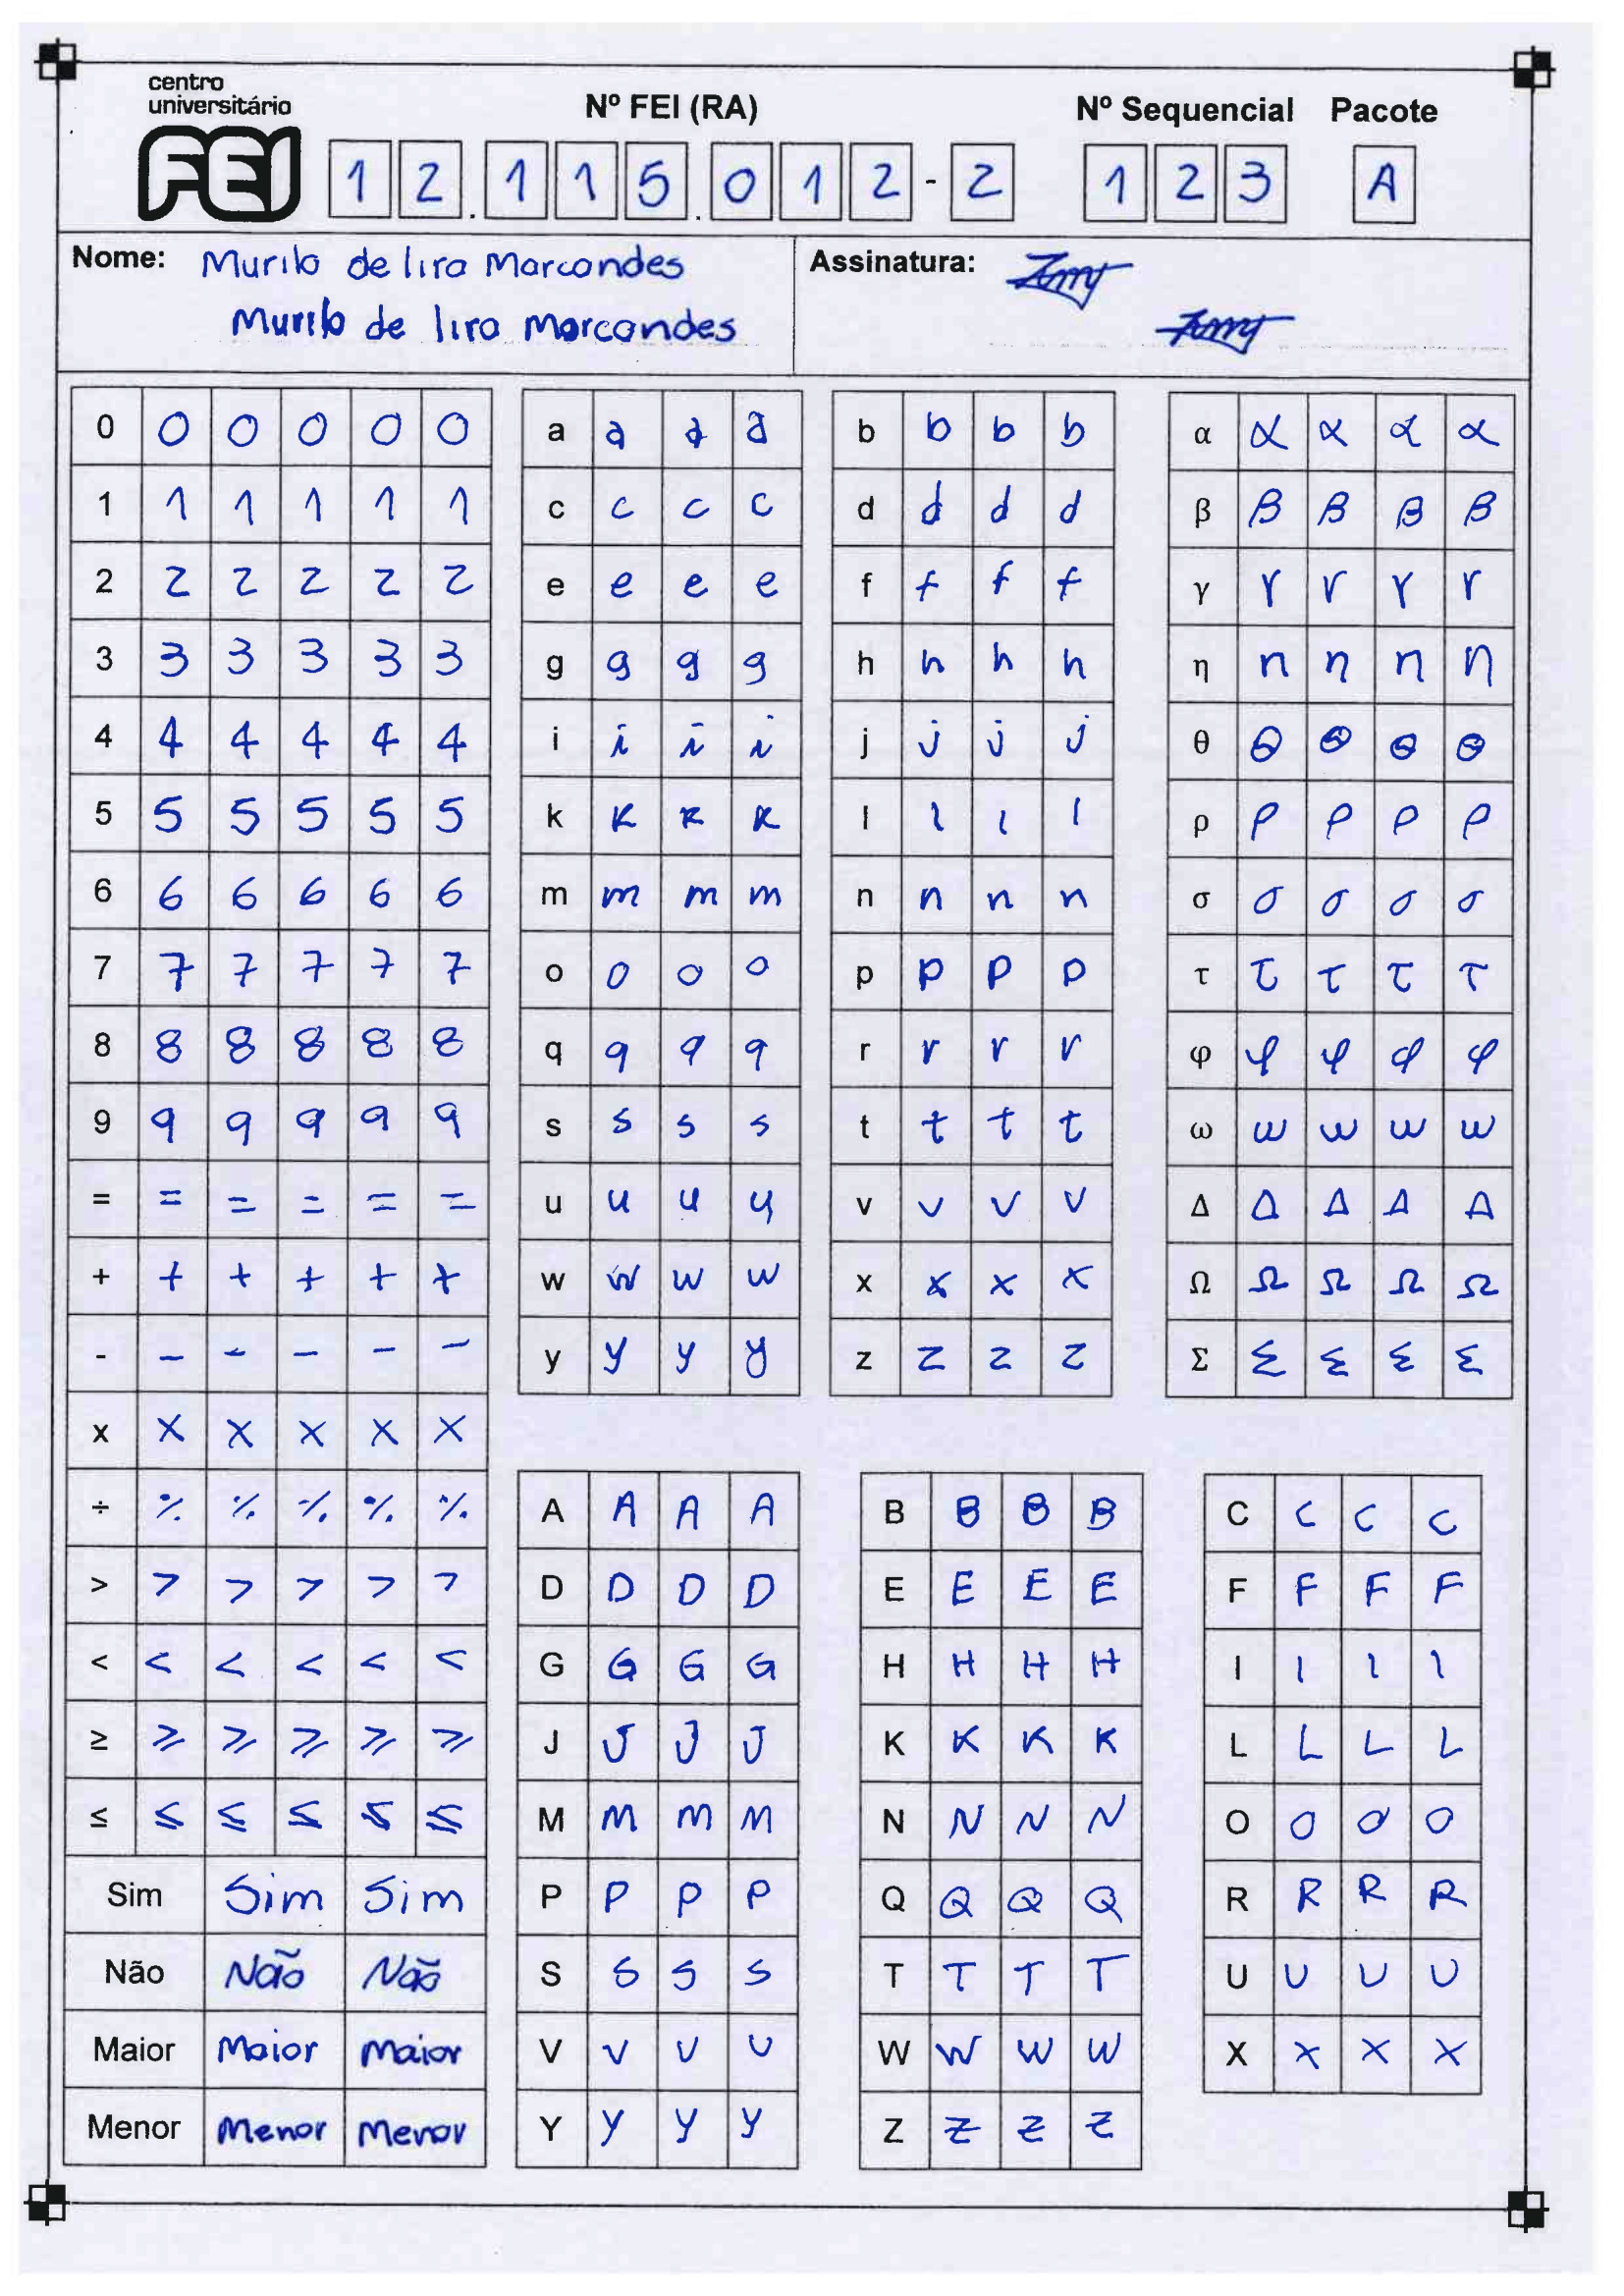 centro
universitário
FEI
Nº FEI (RA) Nº Sequencial Pacote
12.115.012-2 123 A
Nome: Murilo de lira Marcondes
Murilo de lira Marcondes
Assinatura:
0 0 0 0 0 0
1 1 1 1 1 1
2 2 2 2 2 2
3 3 3 3 3 3
4 4 4 4 4 4
5 5 5 5 5 5
6 6 6 6 6 6
7 7 7 7 7 7
8 8 8 8 8 8
9 9 9 9 9 9
= = = = = =
+ + + + + +
- - - - - -
x x x x x x
÷ ÷ ÷ ÷ ÷ ÷
> > > > > >
< < < < < <
≥ ≥ ≥ ≥ ≥ ≥
≤ ≤ ≤ ≤ ≤ ≤
Sim Sim Sim
Não Não Não
Maior Maior Maior
Menor Menor Menor
a a a a
c c c c
e e e e
g g g g
i i i i
k k k k
m m m m
o o o o
q q q q
s s s s
u u u u
w w w w
y y y y
b b b b
d d d d
f f f f
h h h h
j j j j
l l l l
n n n n
p p p p
r r r r
t t t t
v v v v
x x x x
z z z z
α α α α α
β β β β β
γ γ γ γ γ
η η η η η
θ θ θ θ θ
ρ ρ ρ ρ ρ
σ σ σ σ σ
τ τ τ τ τ
φ φ φ φ φ
ω ω ω ω ω
Δ Δ Δ Δ Δ
Ω Ω Ω Ω Ω
Σ Σ Σ Σ Σ
A A A A
D D D D
G G G G
J J J J
M M M M
P P P P
S S S S
V V V V
Y Y Y Y
B B B B
E E E E
H H H H
K K K K
N N N N
Q Q Q Q
T T T T
W W W W
Z Z Z Z
C C C C
F F F F
I I I I
L L L L
O O O O
R R R R
U U U U
X X X X